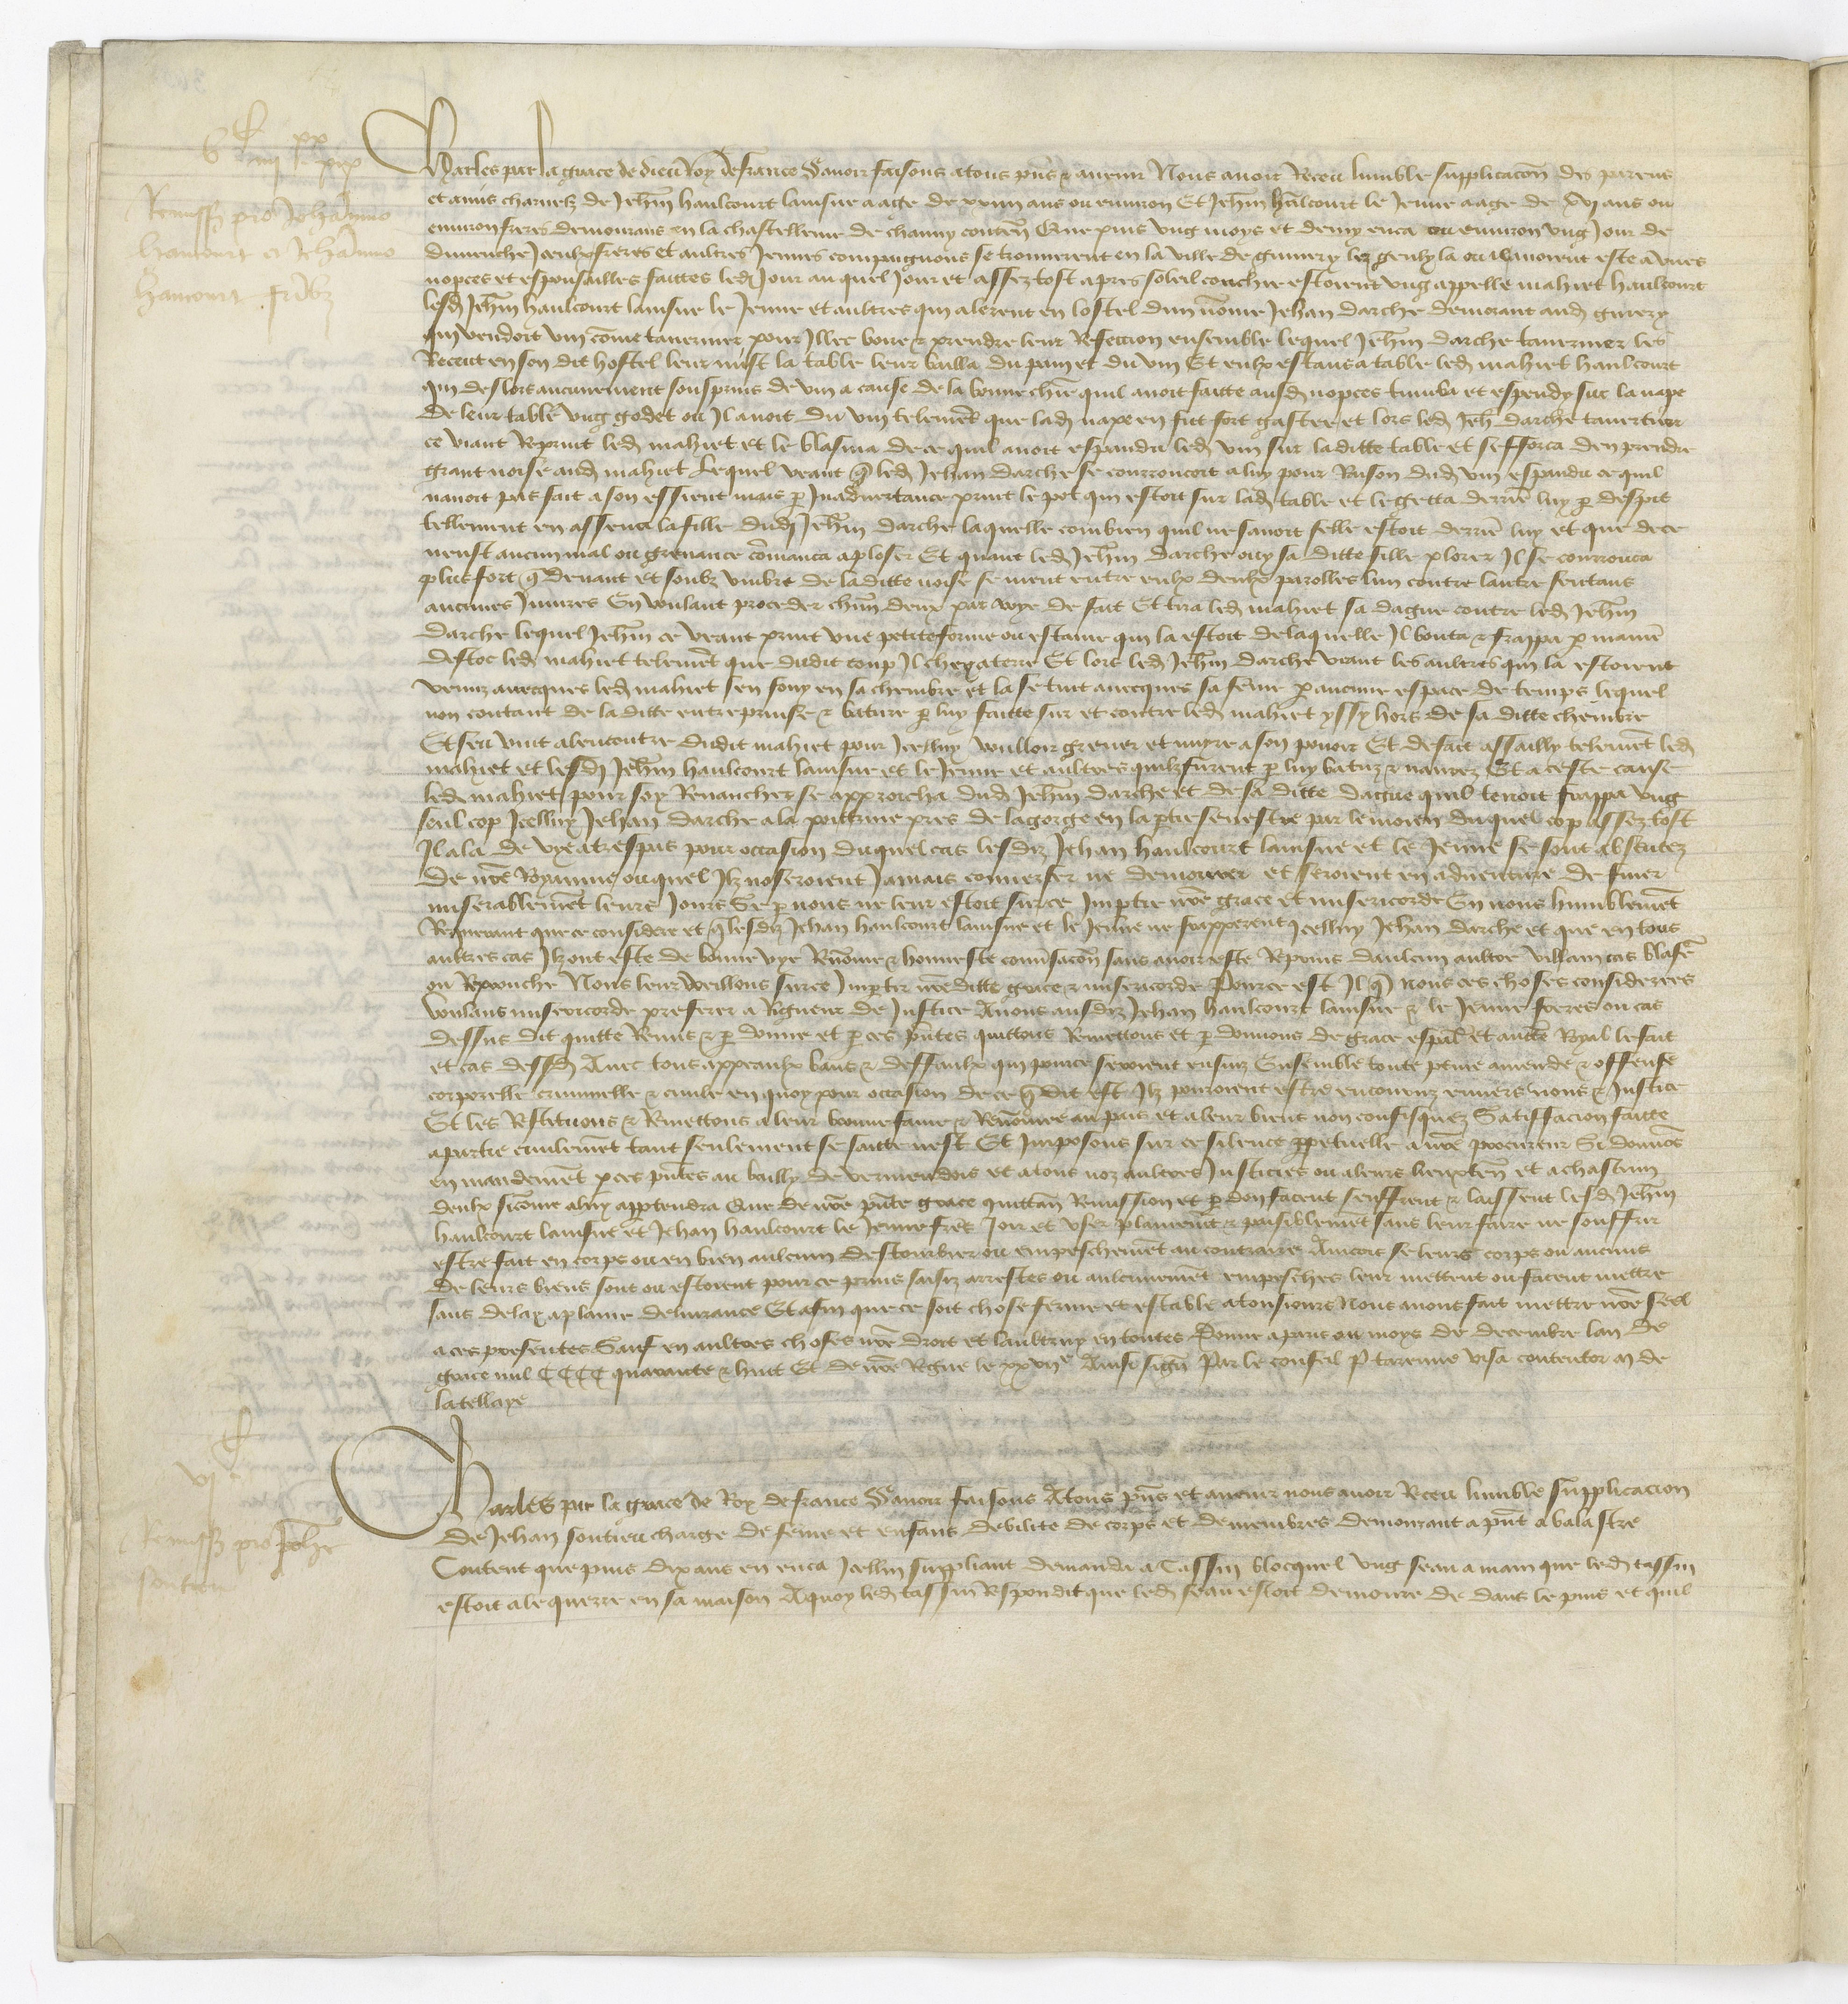 Remiss pro Johanno
haucourt et Johanno
haucourt fribz
Charles par la grace de dieu Roy de france Savoir faisons a tous pns et avenir Nous avoir Receu lumble supplicacon des parens
et amis charnelz de Jehan haulcourt laisne aage de xxiiii ans ou environ Et Jehan haulcourt le Jeune aage de xvi ans ou
environ freres demourans en la chastellenie de chauny conten Que puis ung moys et demy enca ou environ ung Jour de
dimenche Iceulx freres et aultres Jeunes compaignons se trouverent en la ville de guivry lez genly la ou il avoient este a unes
nopces et espousailles faittes led Jour au quel Jour et assez tost apres soleil couchie estoient ung appelle mahiet haulcourt
lesd Jehan haulcourt laisne le Jeune et aultres qui alerent en lostel dun nome Jehan darche demorant aud guivry
qui vendoit vin come tavernier pour Illec boire & prendre leur Refection ensemble lequel Jehan darche tavernier les
Receut en son dit hostel leur mist la table leur bailla du pain et du vin Et eulx estans a table led mahiet haulcourt
qui deslors aucunement sousprins de vin a cause de la bonne chiere quil avoit faitte ausd nopces tumba et espendy sur la nape
de leur table ung godet ou Il avoit du vin telement que lad nape en fut fort gastee et lors led Jeh darche tavernier
ce viant Reprint led mahiet et le blasma de ce quil avoit espandu led vin sur laditte table et sefforca den prendre
grant noise aud mahiet Lequel veant q led Jehan darche se courroucoit a luy pour Raison dud vin espandu ce quil
navoit pas fait a son essient mais p Inadvertance print le pot qui estoit sur lad table et le getta derrie luy p despit
tellement en assena la fille dud Jehan darche laquelle combien quil ne savoit selle estoit derrie luy et que de ce
neust aucun mal ou grevance comanca a plorer Et quant led Jehan darche ouy sa ditte fille plorer Il se courouca
plus fort q devant et soubz umbre de laditte noise se meut entre eulx deulx parolles lun contre lautre sentans
aucunes Iniures En voulant proceder chun deux par voye de fait Et tira led mahiet sa dague contre led Jehan
darche lequel Jehan ce veant print une petite forme ou estame qui la estoit de laquelle Il bouta & frappa p manie
destoc led mahiet telemet que dudit coup Il chey a terre Et lors led Jehan darche veant les aultres qui la estoient
venuz avecques led mahiet sen fouy en sa chembre et la se tint avecques sa feme p aucune espace de temps lequel
non contant de la ditte entreprinse & bature p luy faitte sur et contre led mahiet yssy hors de sa ditte chembre
Et sen vint alencontre dudit mahiet pour Icelluy voulloir grever et nuyre a son povoir Et de fait assailly telemet led
mahiet et lesd Jehan haulcourt laisne et le Jeune et aultres quilz furent p luy batuz & navrez Et a ceste cause
led mahiet pour soy Revancher se approicha dud Jehan darche et de sa ditte dague quil tenoit frappa ung
seul cop Icelluy Jehan darche a la poittrine pres de la gorge en la ptie senestre par le moien du quel cop assez tost
Il ala de vye a trespas pour occasion du quel cas lesdiz Jehan haulcourt laisne et le Jeune se sont absentez
de nre Royaume ou quel Ilz noseroient Jamais converser ne demourer et seroient en adventure de finer
miserablemet leurs Jours Se p nous ne leur estoit sur ce Imptie nre grace et misericorde En nous humblemet
Requerant que ce considere et q lesdiz Jehan haulcourt laisne et le Jeune ne frapperent Icelluy Jehan darche et que en tous
autres cas Ilz ont este de bonne vye Renome & honneste conversacon sans avoir este Reprins daulcun aultre villain cas blasme
ou Reprouche Nous leur veillons sur ce Imptir nre ditte grace & misericorde Pour ce est Il q nous ces choses considerees
voulans misericorde preferer a Rigueur de Justice Avons ausdiz Jehan haulcourt laisne & le Jeune freres ou cas
dessus dit quitte Remis & pdonne et p ces pntes quittons Remettons et pdonnons de grace espal et auctte Royal le fait
et cas dessd Avec tous appeaulx bans & deffaulx qui pour ce seroient ensuiz Ensemble toute peine amende & offense
corporelle criminelle & civile en quoy pour occasion de ce q dit est Ilz pourroient estre encouruz envers nous & Justice
Et les Restituons & Remettons a leur bonne fame & Renomee au pais et a leur biens non confisquez Satisfacion faitte
a partie civilemet tant seulement se faitte nest Et Imposons sur ce silence perpetuelle a nre procureur Si donnos
en mandemet p ces pntes au bailly de vermendois et a tous noz aultres Justiciers ou a leurs lieuxten et a chascun
deulx sicome a luy apptendra Que de nre pnte grace quittan Remission et pdon facent seuffrent & laissent lesd Jehan
haulcourt laisne et Jehan haulcourt le Jeune fres Joir et user plainemt & paisiblemet sans leur faire ne souffrir
estre fait en corps ou en bien aulcun destourbier ou empeschemet au contraire Aincois se leurs corps ou aucuns
de leurs biens sont ou estoient pour ce prins saisiz arrestes ou aulcunemet empesches leur mettent ou facent mettre
sans delay a plaine delivrance Et afin que ce soit chose ferme et estable a tousiours Nous avons fait mettre nre seel
a ces presentes Sauf en aultres choses nre droit et laultruy en toutes Donne a paris ou moys de decembre lan de
grace mil CCCC quarante & huit Et de nre Regne le xxvii e Ainsi sign Par le conseil P tarenne visa contentor m de
latellaye
vi
Remiss pro Johe
soutieu
Charles par la grace de Roy de france Savoir faisons A tous pns et avenir nous avoir Receu lumble supplicacion
de Jehan soutieu charge de feme et enfans debilite de corps et de membres demourant a pnt a balastre
Contenet que puis dix ans en enca Icellui suppliant demanda a Tassin blocquel ung seau a main que led tassin
estoit ale querre en sa maison Aquoy led tassin Respondit que led seau estoit demoure de dans le puis et quil